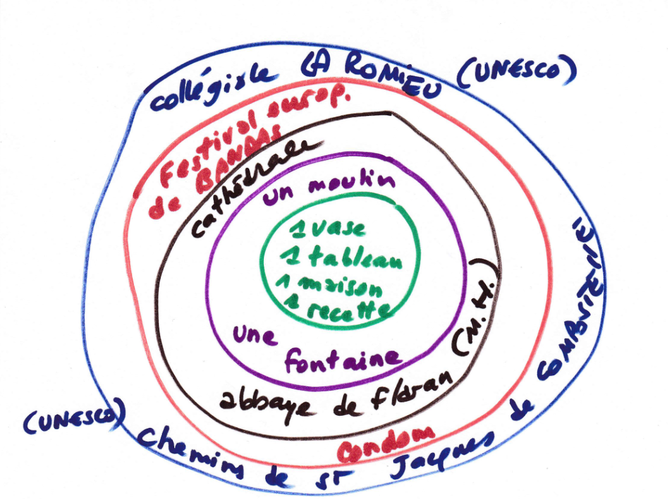 collégiale LA ROMIEU (UNESCO)
Festival europ.
de BANDAS
cathédrale
un moulin
1 vase
1 tableau
1 maison
1 recette
une
fontaine
abbaye de flaran (M.H.)
condom
(UNESCO)
chemins de st Jacques de COMPOSTELLE